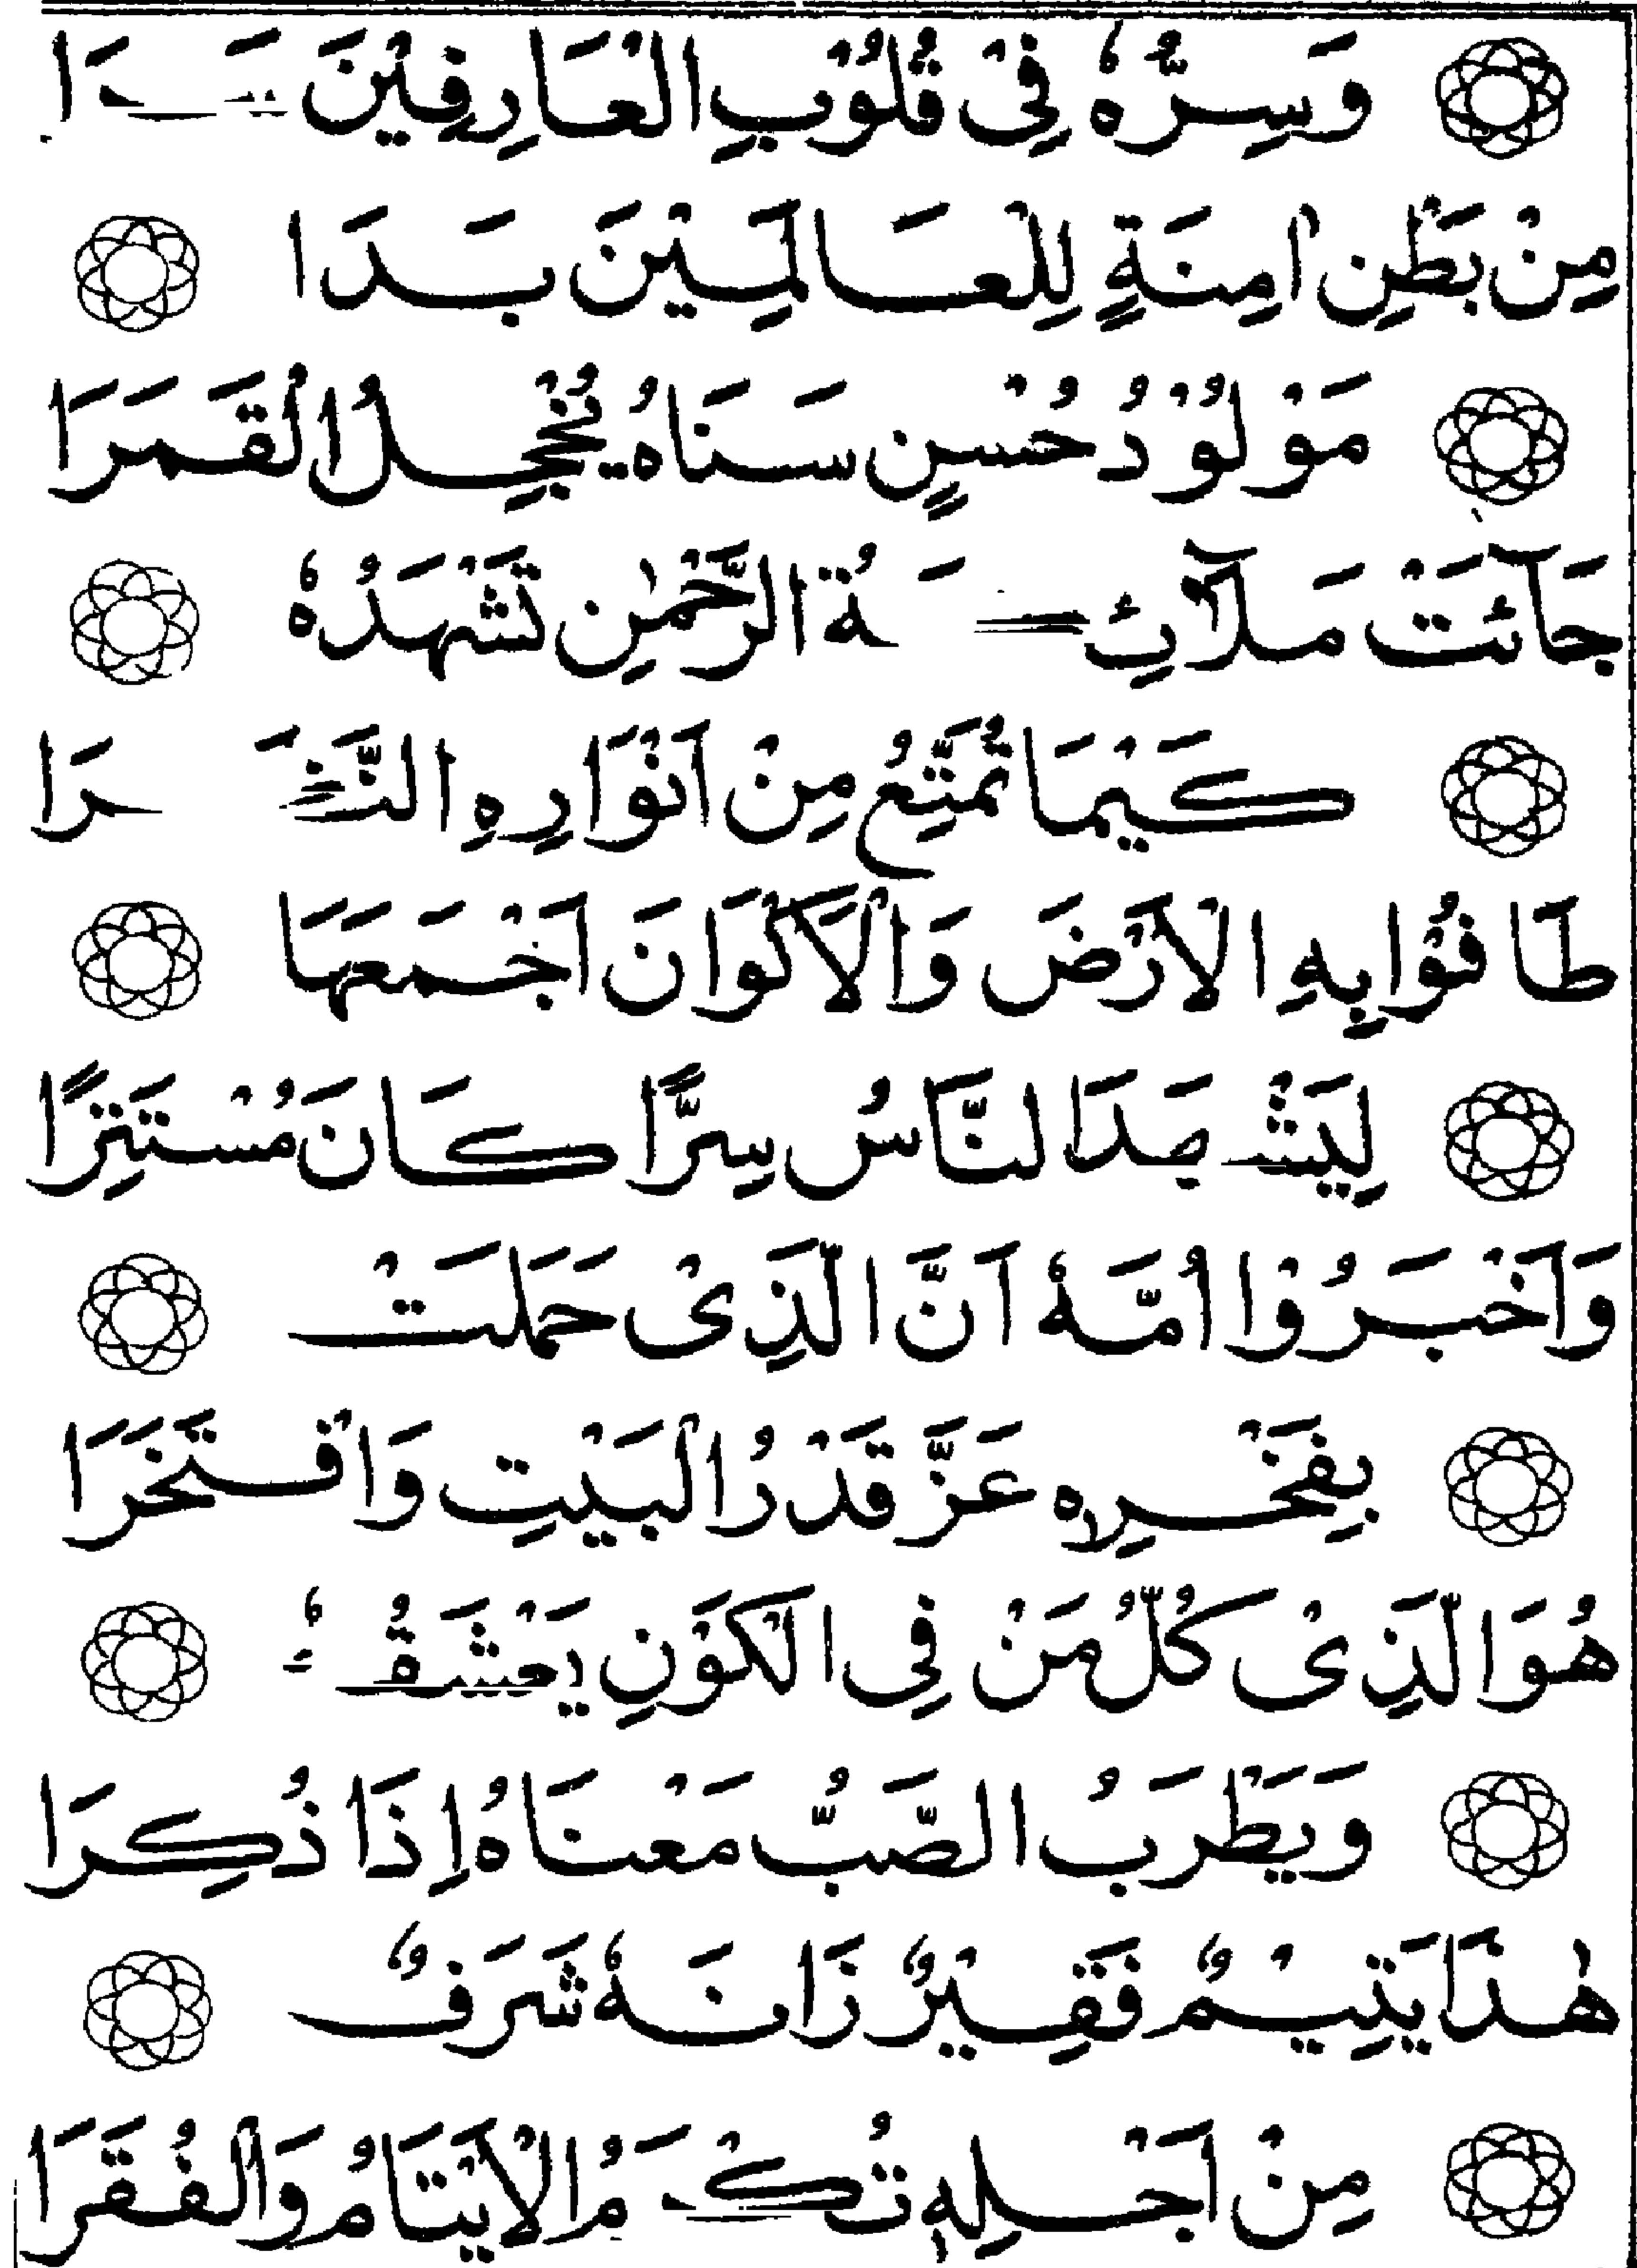 وَسِرُّهٗ فِیْ قُلُوْبِ الْعَارِفِیْنَ
مِنْ بَطْنِ اٰمِنَةٍ لِلْعَالَمِیْنَ بَدَا
مَوْلُوْدُ حُسْنٍ سَنَاهُ یُخْجِلُ الْقَمَرَا
جَآئَتْ مَلَآئِكَةُ الرَّحْمٰنِ تَشْهَدُهٗ
كَیْمَا تُمَتِّعُ مِنْ اَنْوَارِهِ
طَافُوْا بِهِ الْاَرْضَ وَالْاَكْوَانَ اَجْمَعَهَا
لِیَشْهَدَ النَّاسُ سِرًّا كَانَ مُسْتَتِرًا
وَاَخْبَرُوْا اُمَّهٗ اَنَّ الَّذِیْ حَمَلَتْ
بِفَخْرِهٖ عَزَّ قَدْرُ الْبَیْتِ وَافْتَخَرَا
هُوَ الَّذِیْ كُلُّ مَنْ فِی الْكَوْنِ یَعْشَقُهٗ
وَیَطْرَبُ الصَّبُّ مَعْنَاهُ اِذَا ذُكِرَا
هٰذَا یَتِیْمٌ فَقِیْرٌ زَانَهٗ شَرَفٌ
مِنْ اَجْلِهٖ تُكْرَمُ الْاَیْتَامُ وَالْفُقَرَا